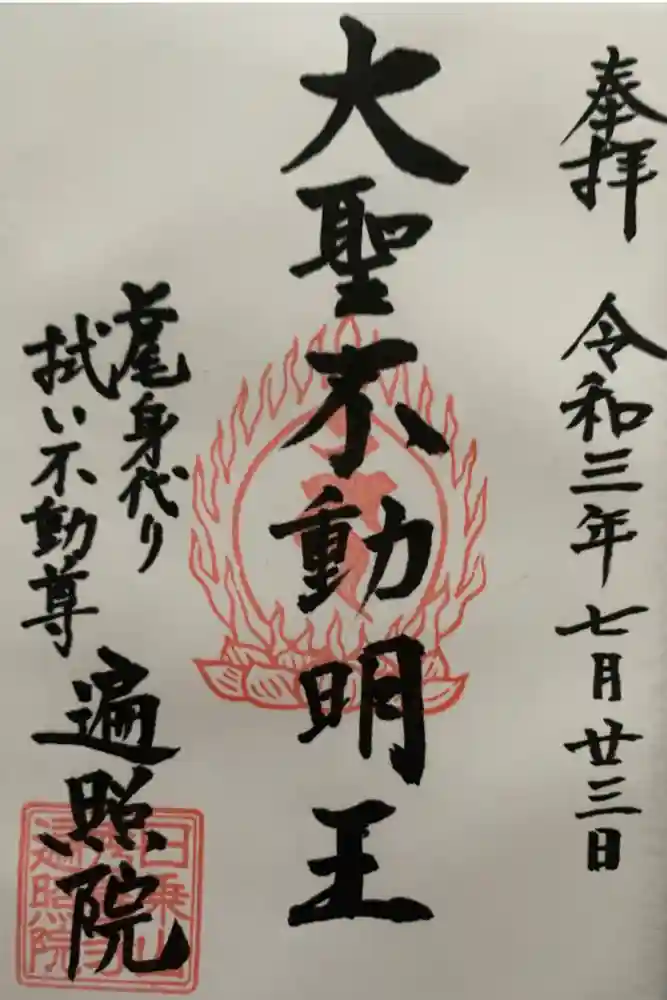 奉拝
令和三年七月廿三日
大聖不動明王
上尾身代り
拭い不動尊
遍照院
日乗山
遍照院